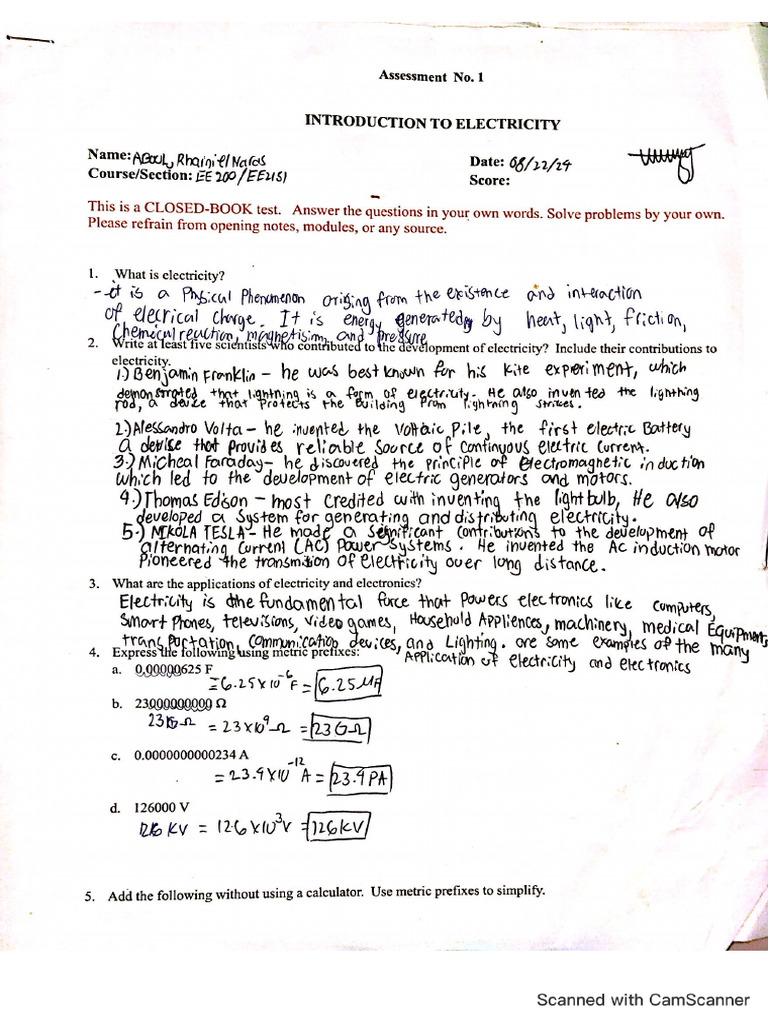 Assessment No. 1
INTRODUCTION TO ELECTRICITY
Name: Rhainiel
Date: 08/22/24
Course/Section: EE 200/EE2151
Score:
This is a CLOSED-BOOK test. Answer the questions in your own words. Solve problems by your own.
Please refrain from opening notes, modules, or any source.
1. What is electricity?
- it is a Physical Phenomenon arising from the existence and interaction
of elecrical charge. It is energy generated by heat, light, friction,
Chemical reaction, magnetisim, and pressure
2. Write at least five scientists who contributed to the development of electricity? Include their contributions to
electricity.
1.) Benjamin Franklin - he was best known for his kite experiment, which
demonstrated that lightning is a form of electricity. He also invented the lightning
rod, a device that protects the building from lightning strikes.
2.) Alessandro Volta - he invented the Voltaic Pile, the first electric Battery
a devise that provides reliable source of continuous electric current.
3.) Micheal Faraday - he discovered the principle of electromagnetic induction
which led to the development of electric generators and motors.
4.) Thomas Edison - most credited with inventing the light bulb, He also
developed a system for generating and distributing electricity.
5.) NIKOLA TESLA - He made a significant contributions to the development of
alternating Current (AC) Power systems. He invented the Ac induction motor
Pioneered the transmition of electricity over long distance.
3. What are the applications of electricity and electronics?
Electricity is the fundamental force that powers electronics like computers,
Smart Phones, televisions, video games, Household Appliences, machinery, medical Equipments,
transportation, communication devices, and Lighting. are some examples of the many
Application of electricity and electronics
4. Express the following using metric prefixes:
a. 0.00000625 F
= 6.25 x 10⁻⁶ F = 6.25 μF
b. 23000000000 Ω
23 GΩ = 23 x 10⁹ Ω = 23 GΩ
c. 0.0000000000234 A
= 23.4 x 10⁻¹² A = 23.4 PA
d. 126000 V
126 KV = 126 x 10³ V = 126 KV
5. Add the following without using a calculator. Use metric prefixes to simplify.
Scanned with CamScanner